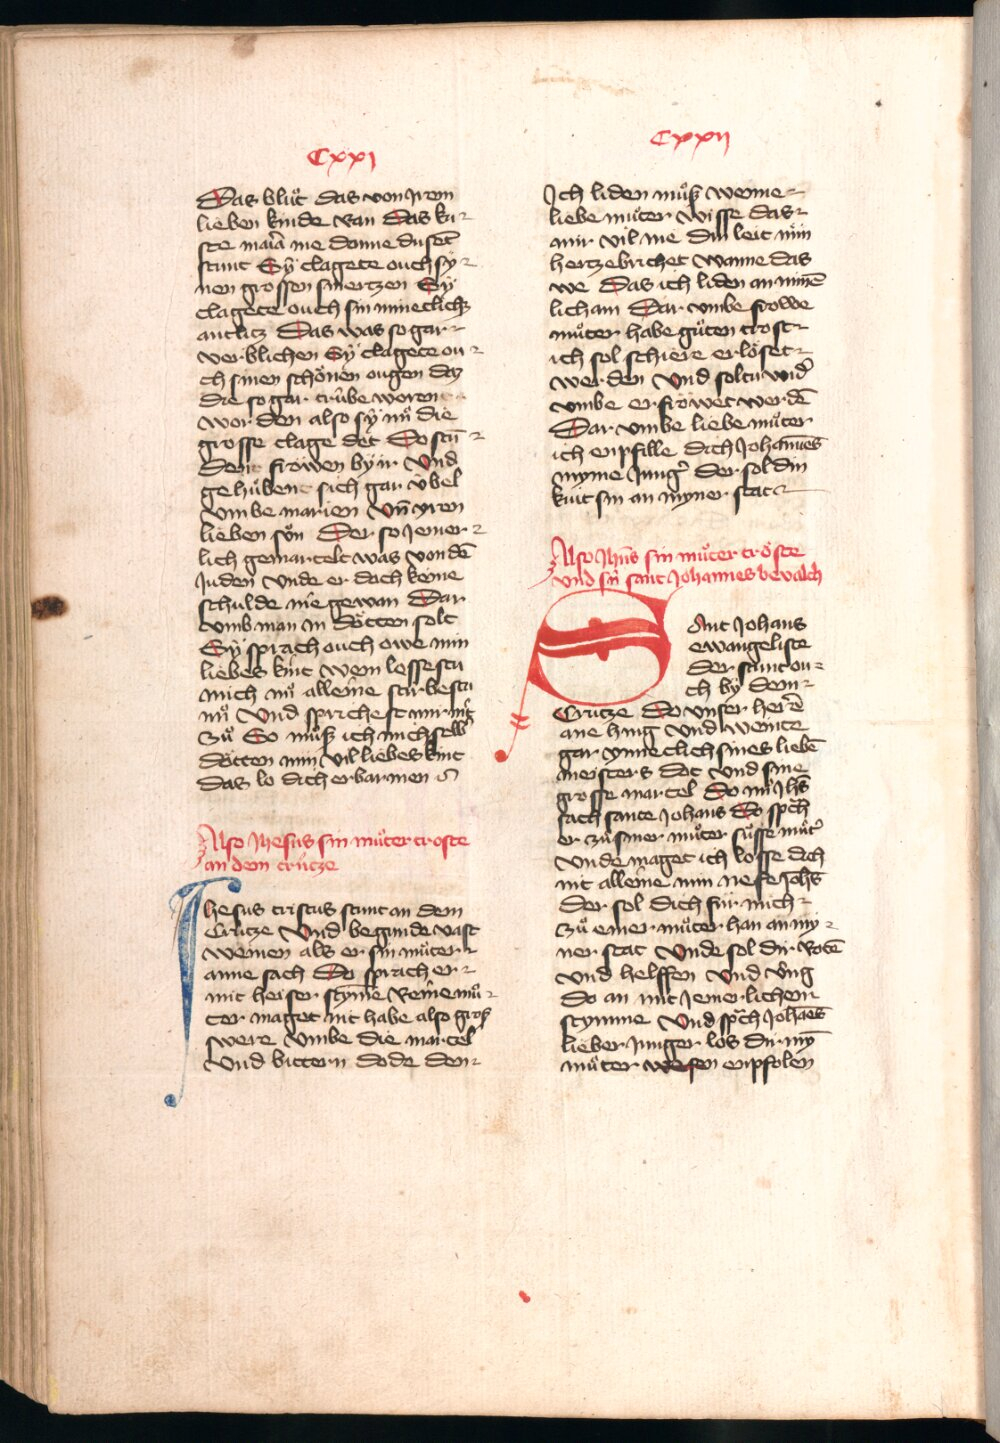 Cxxj
Das blůt das von Jrem
lieben kinde ran Das ku-
ste maria me danne dusēt
stunt Sÿ clagete ouch sy-
nen grossen smertzen Sÿ
clagete ouch sin mineclichz
antlitz Das was so gar
verblichen Sÿ clagete ou-
ch sinen schönen ougen daz
die so gar trůbe woren
wor den also sÿ nů die
grosse clage det Do stū-
dent frowen bÿ ir Und
gehůbent sich gar ůbel
Umbe marien Uñ yren
lieben sůn Der so Jemer-
lich gemartelt was von dē
Juden Unde er doch keine
schulde nie gewan Dar
umb man in dötten solt
Sÿ sprach ouch owe min
liebes kint wem lossestu
mich nů alleine stirbestu
nů Und sprichest mir nit
zů So můß ich mich selb
dötten min vil liebes kint
das lo dich erbarmen
Also Jhesus sin můter troste
an dem crůtze
Jhesus cristus stunt an dem
Crůtze Und begunde vast
weinen als er sin můter
anne sach Do sprach er
mit heiser stymē Reine mů-
ter maget nit habe also groß
swere Umbe die martel
Und bittern dode den
Cxxij
Jch liden můß wenne
liebe můter wisse das
mir vil me din leit min
hertze brichet wanne das
we Das ich liden an minē
licham Dar umbe frowe
můter habe gůten trost
ich sol schiere erlöset
werden Und soltu wid'
umbe erfrowet werdē
Dar umbe liebe můter
ich enpfille dich Johannes
myme Jung' der sol din
kint sin an myner stat
Also Jhūs sin můter tröste
Und sÿ sant Johannes bevalch
Sant Johans
ewangeliste
der stunt ou-
ch bÿ dem
Crůtze Do unser herre
ane hing Und weinte
gar ynneclich sines liebē
meisters dot Und sine
grosse martel Do nů Jhs
sach sante Johans Do spch
er zů siner můter sůsse můt'
Unde maget ich losse dich
nit alleine min nefe Johs
Der sol dich fůr mich
zů einer můter han an my-
ner stat Unde sol dir rotē
Und helffen Und ving
do an mit Jemerlichem
stymme Und spch Johāes
lieber Junger los dir mȳ
můter wesen enpfolen